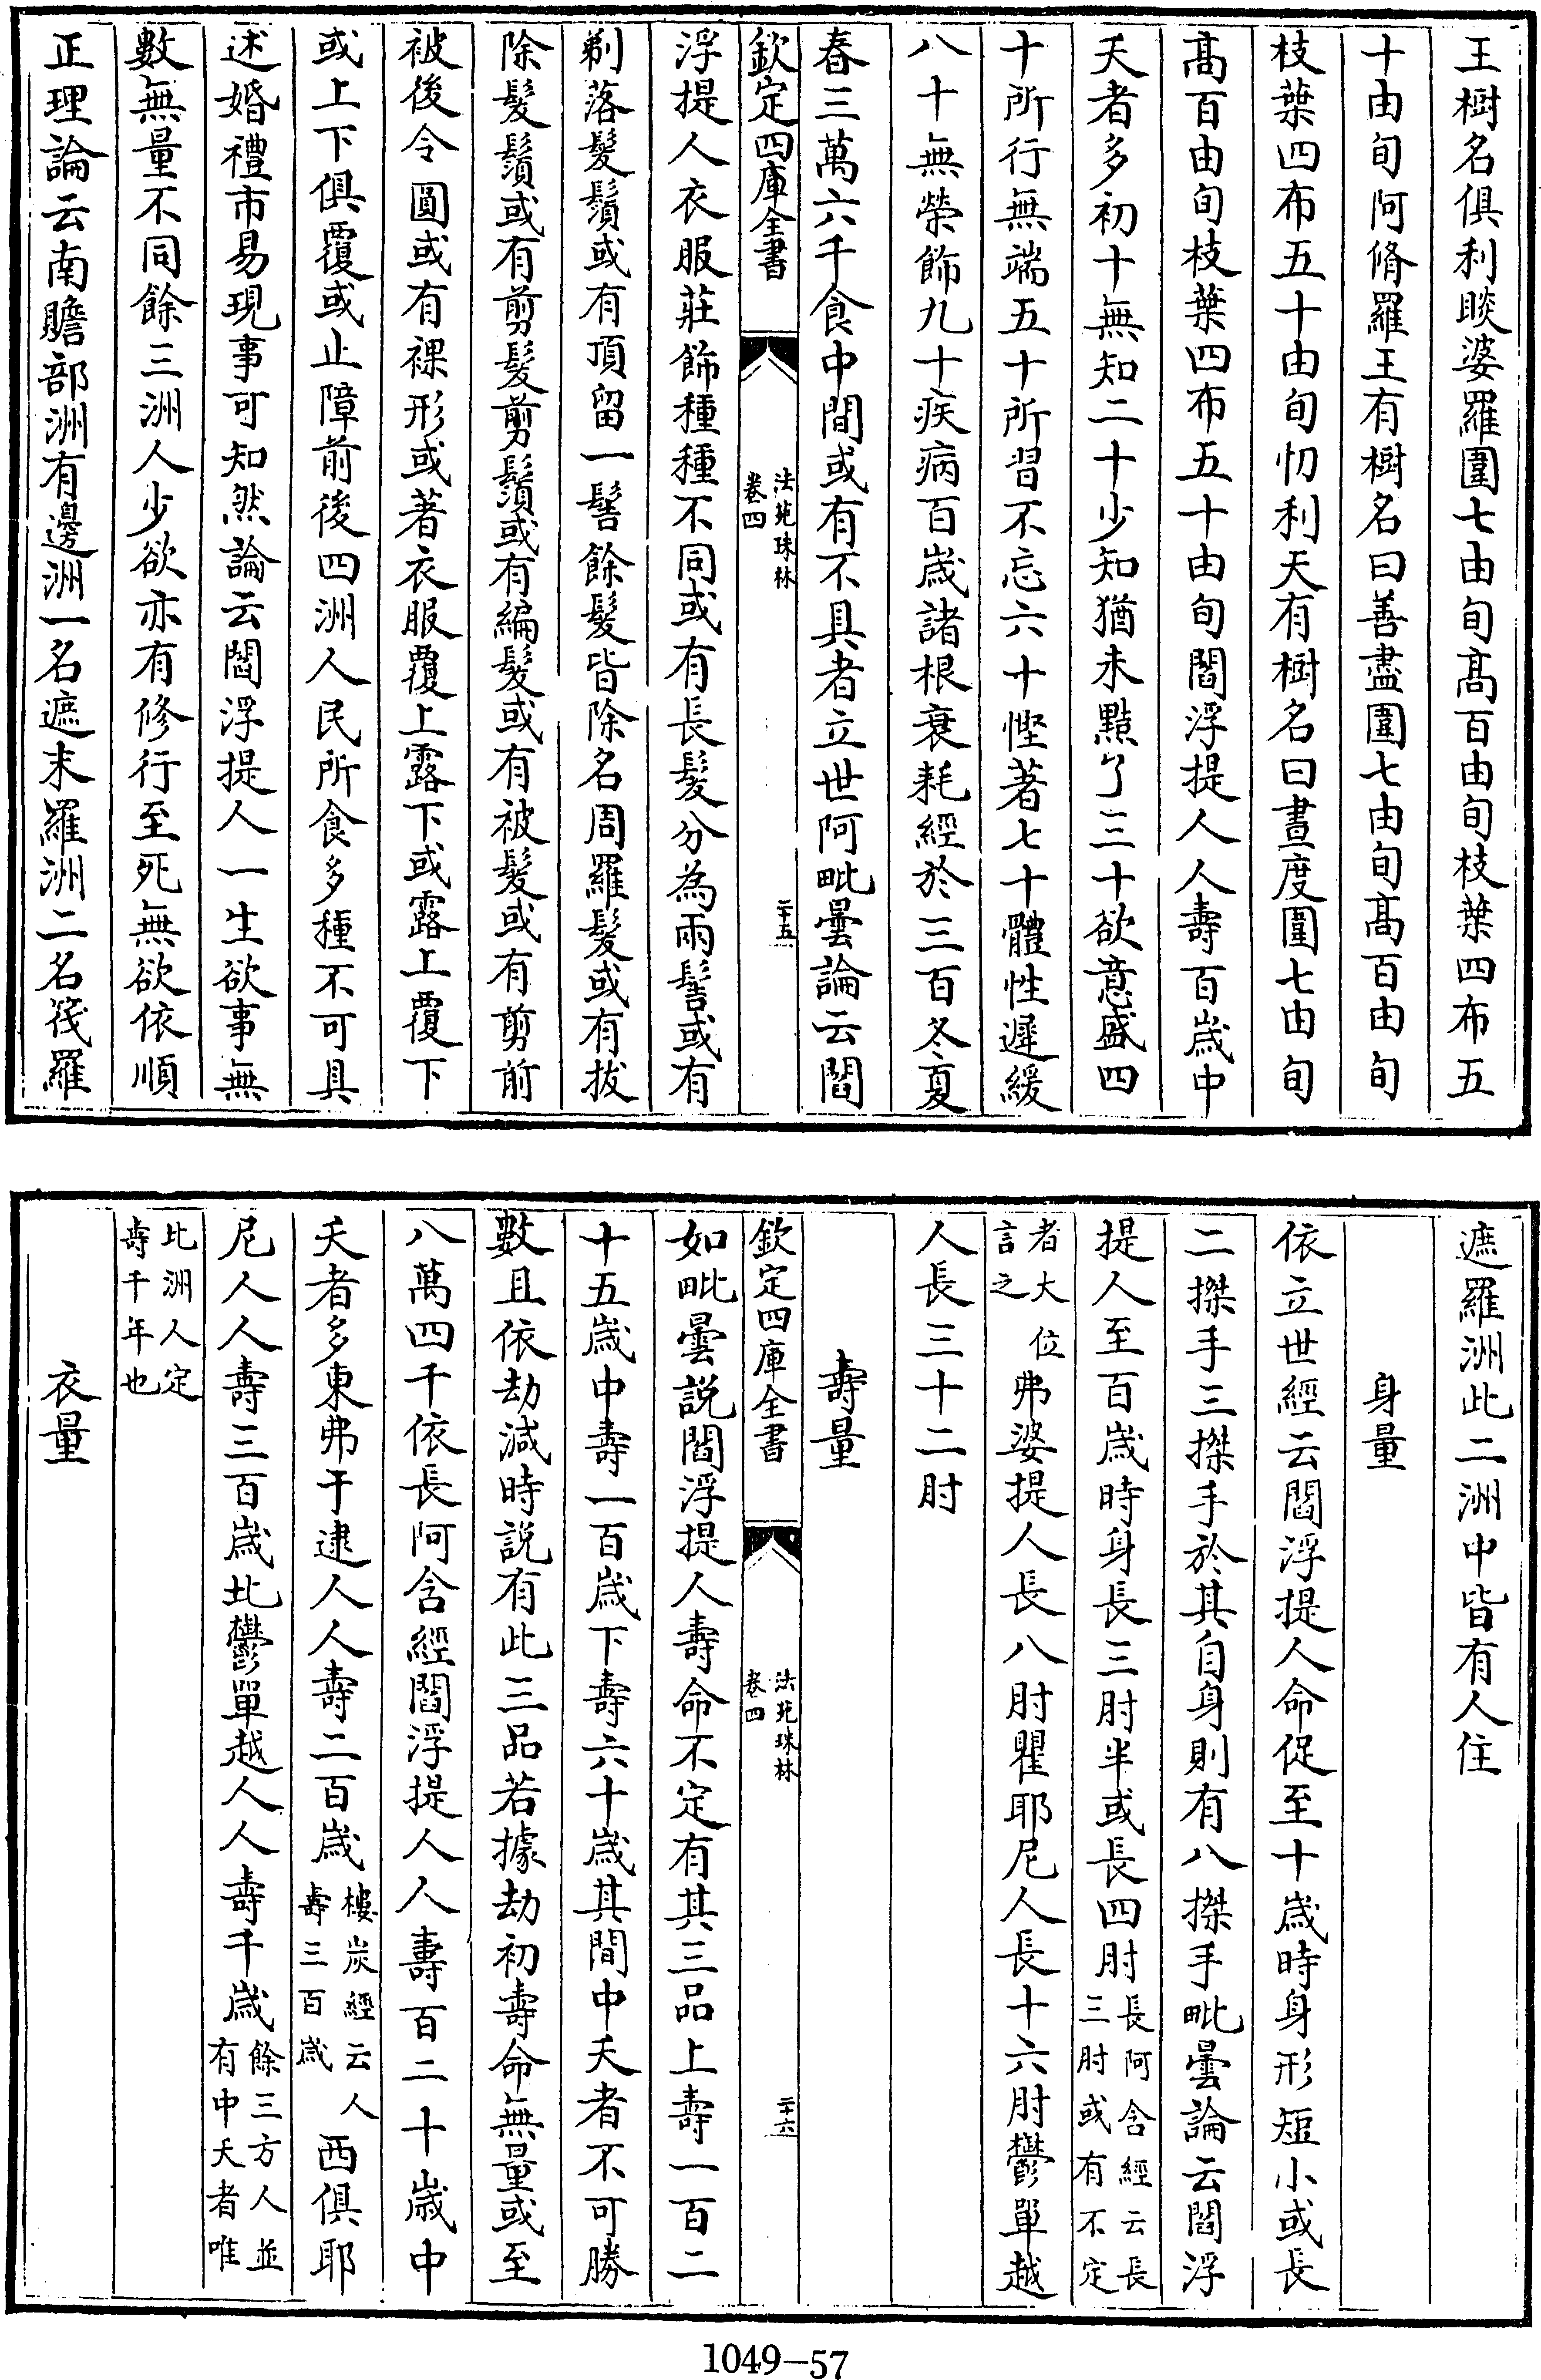 王樹名俱利睒婆羅圍七由旬髙百由旬枝葉四布五
十由旬阿脩羅王有樹名曰善盡圍七由旬髙百由旬
枝葉四布五十由旬忉利天有樹名曰晝度圍七由旬
髙百由旬枝葉四布五十由旬閻浮提人人壽百歳中
夭者多初十無知二十少知猶未黠了三十欲意盛四
十所行無端五十所習不忘六十慳著七十體性遲緩
八十無榮飾九十疾病百歳諸根衰耗經於三百冬夏
春三萬六千食中間或有不具者立世阿毗曇論云閻
欽定四庫全書
法苑珠林
卷四
二十五
浮提人衣服莊飾種種不同或有長髮分為兩髻或有
剃落髮鬚或有頂留一髻餘髮皆除名周羅髮或有拔
除髮鬚或有剪髮剪鬚或有編髮或有被髮或有剪前
被後令圓或有裸形或著衣服覆上露下或露上覆下
或上下俱覆或止障前後四洲人民所食多種不可具
述婚禮市易現事可知然論云閻浮提人一生欲事無
數無量不同餘三洲人少欲亦有修行至死無欲依順
正理論云南贍部洲有邊洲一名遮末羅洲二名筏羅
遮羅洲此二洲中皆有人住
身量
依立世經云閻浮提人命促至十歳時身形短小或長
二搩手三搩手於其自身則有八搩手毗曇論云閻浮
提人至百歳時身長三肘半或長四肘長阿含經云長三肘或有不定
者大位言之弗婆提人長八肘瞿耶尼人長十六肘鬱單越
人長三十二肘
壽量
欽定四庫全書
法苑珠林
卷四
二十六
如毗曇説閻浮提人壽命不定有其三品上壽一百二
十五歳中壽一百歳下壽六十歳其間中夭者不可勝
數且依劫減時説有此三品若據劫初壽命無量或至
八萬四千依長阿含經閻浮提人人壽百二十歳中
夭者多東弗于逮人人壽二百歳樓炭經云人壽三百歳西俱耶
尼人人壽三百歳北鬱單越人人壽千歳餘三方人並有中夭者唯
比洲人定壽千年也
衣量
1049—57